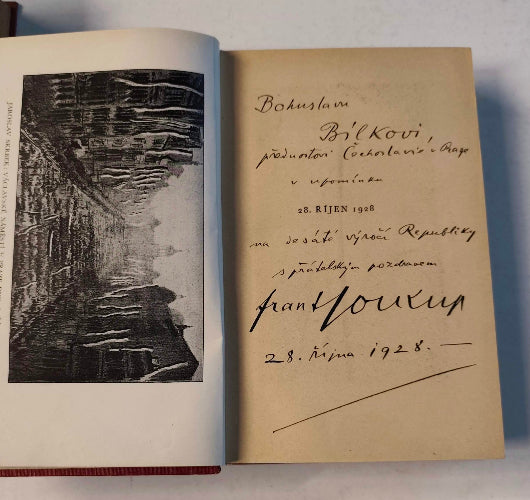 JAROSLAV SKRBEK: VÁCLAVSKÉ NÁMĚSTÍ V
Bohuslavu
Bílkovi,
přednostovi Čechoslavie v Praze
v upomínku
28. ŘÍJEN 1928
na desáté výročí Republiky
s přátelským pozdravem
Frant Soukup
28. října 1928. —